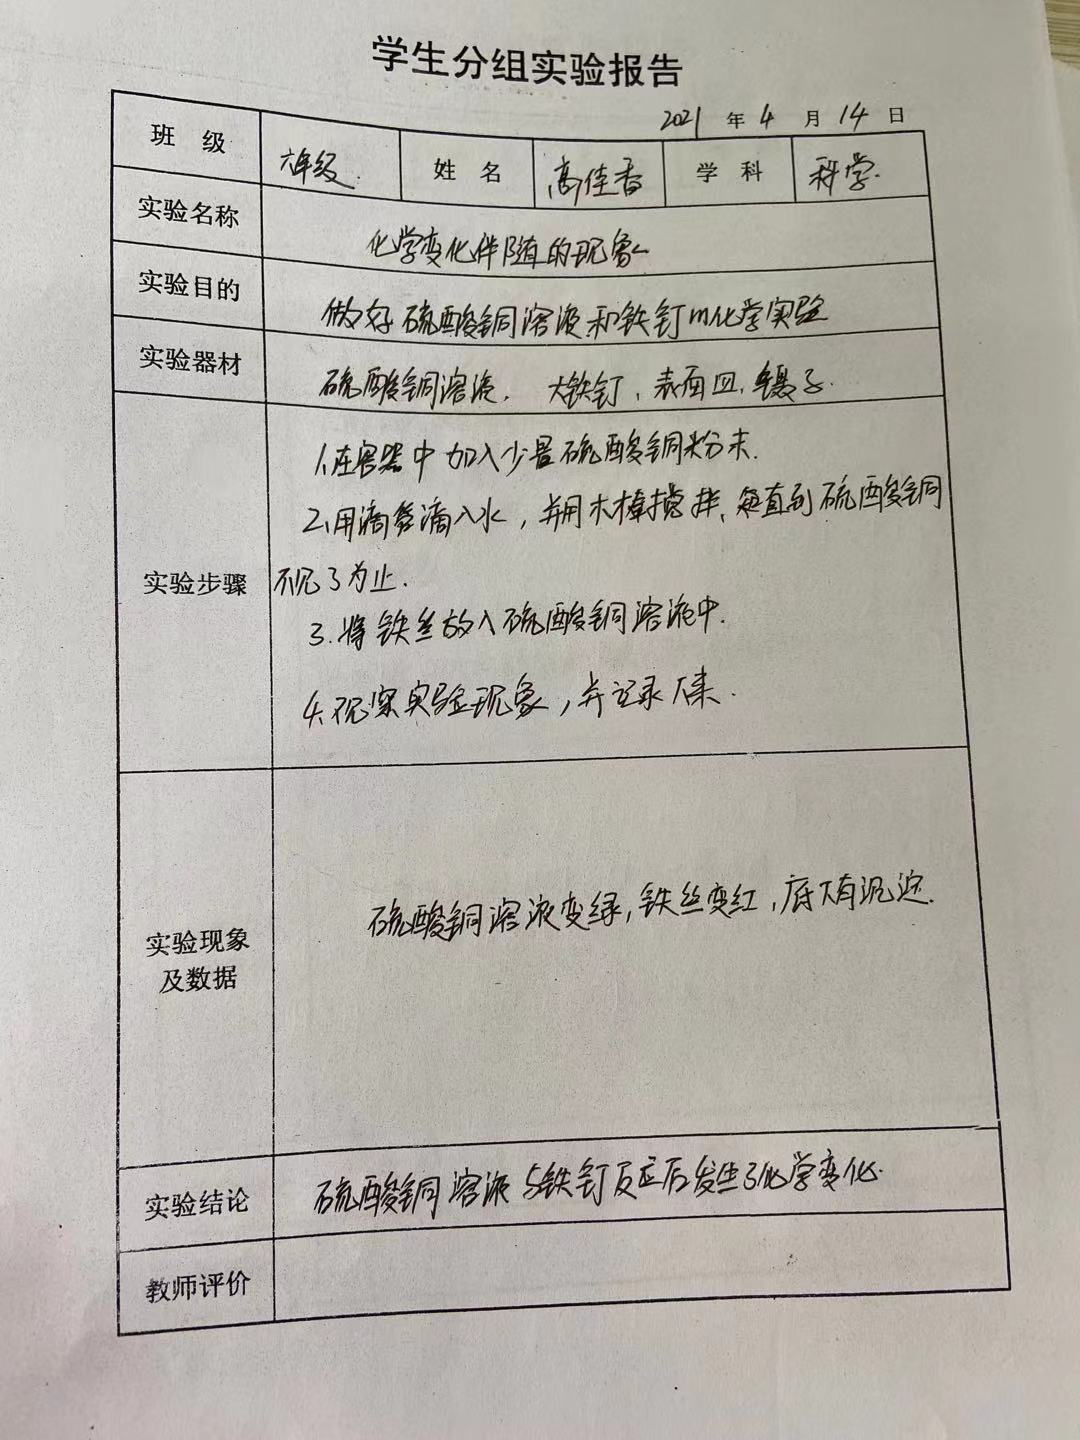 学生分组实验报告
2021 年 4 月 14 日
班 级 六年级. 姓 名 高佳香 学 科 科学.
实验名称 化学变化伴随的现象
实验目的 做好硫酸铜溶液和铁钉的化学实验
实验器材 硫酸铜溶液. 大铁钉, 表面皿, 镊子.
1.在容器中加入少量硫酸铜粉末.
2.用滴管滴入水, 并用木棒搅拌, 直到硫酸铜
实验步骤 不见了为止.
3.将铁丝放入硫酸铜溶液中.
4.观察实验现象, 并记录下来.
硫酸铜溶液变绿, 铁丝变红, 底下有沉淀.
实验现象
及数据
实验结论 硫酸铜溶液与铁钉反应后发生了化学变化.
教师评价